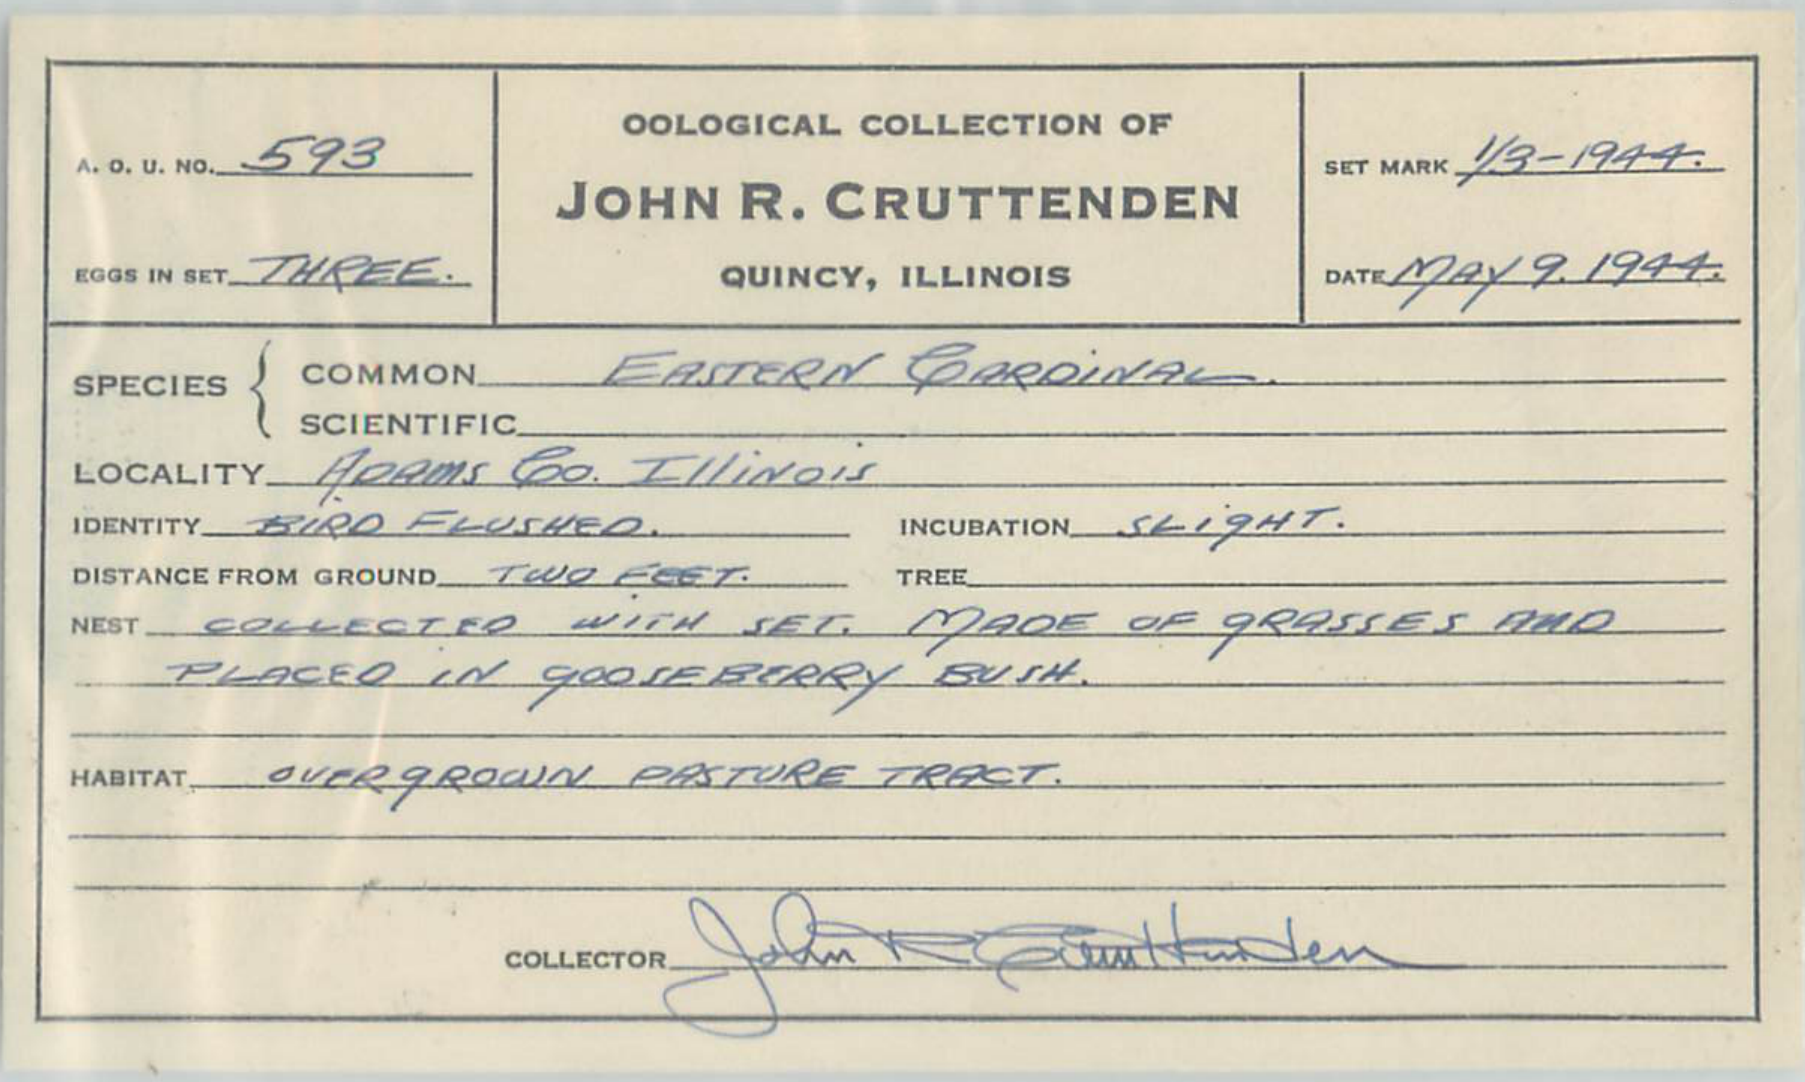 OOLOGICAL COLLECTION OF
JOHN R. CRUTTENDEN
QUINCY, ILLINOIS
A. O. U. NO. 593
EGGS IN SET THREE.
SET MARK 1/3-1944.
DATE MAY 9. 1944.
SPECIES { COMMON EASTERN CARDINAL.
SCIENTIFIC
LOCALITY ADAMS CO. ILLINOIS
IDENTITY BIRD FLUSHED. INCUBATION SLIGHT.
DISTANCE FROM GROUND TWO FEET. TREE
NEST COLLECTED WITH SET. MADE OF GRASSES AND
PLACED IN GOOSEBERRY BUSH.
HABITAT OVERGROWN PASTURE TRACT.
COLLECTOR John R Cruttenden